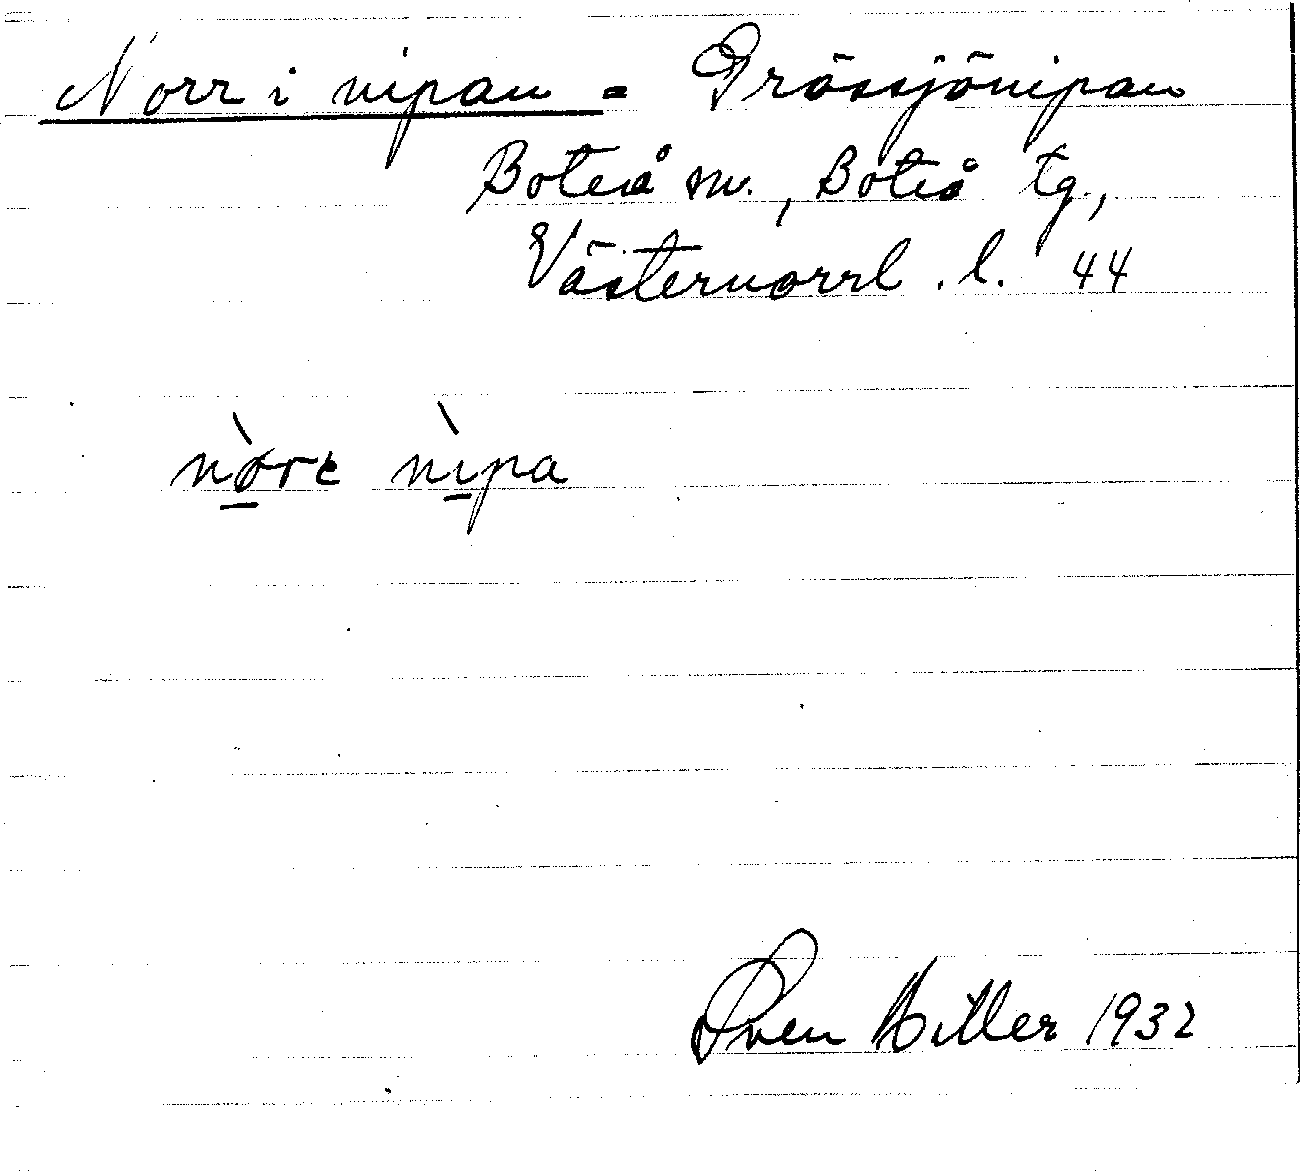 Norr i nipan = Grössjönipan
Boteå sn., Boteå tg.,
Västernorrl. l. 44
nòrε nìpa
Sven Hiller 1932